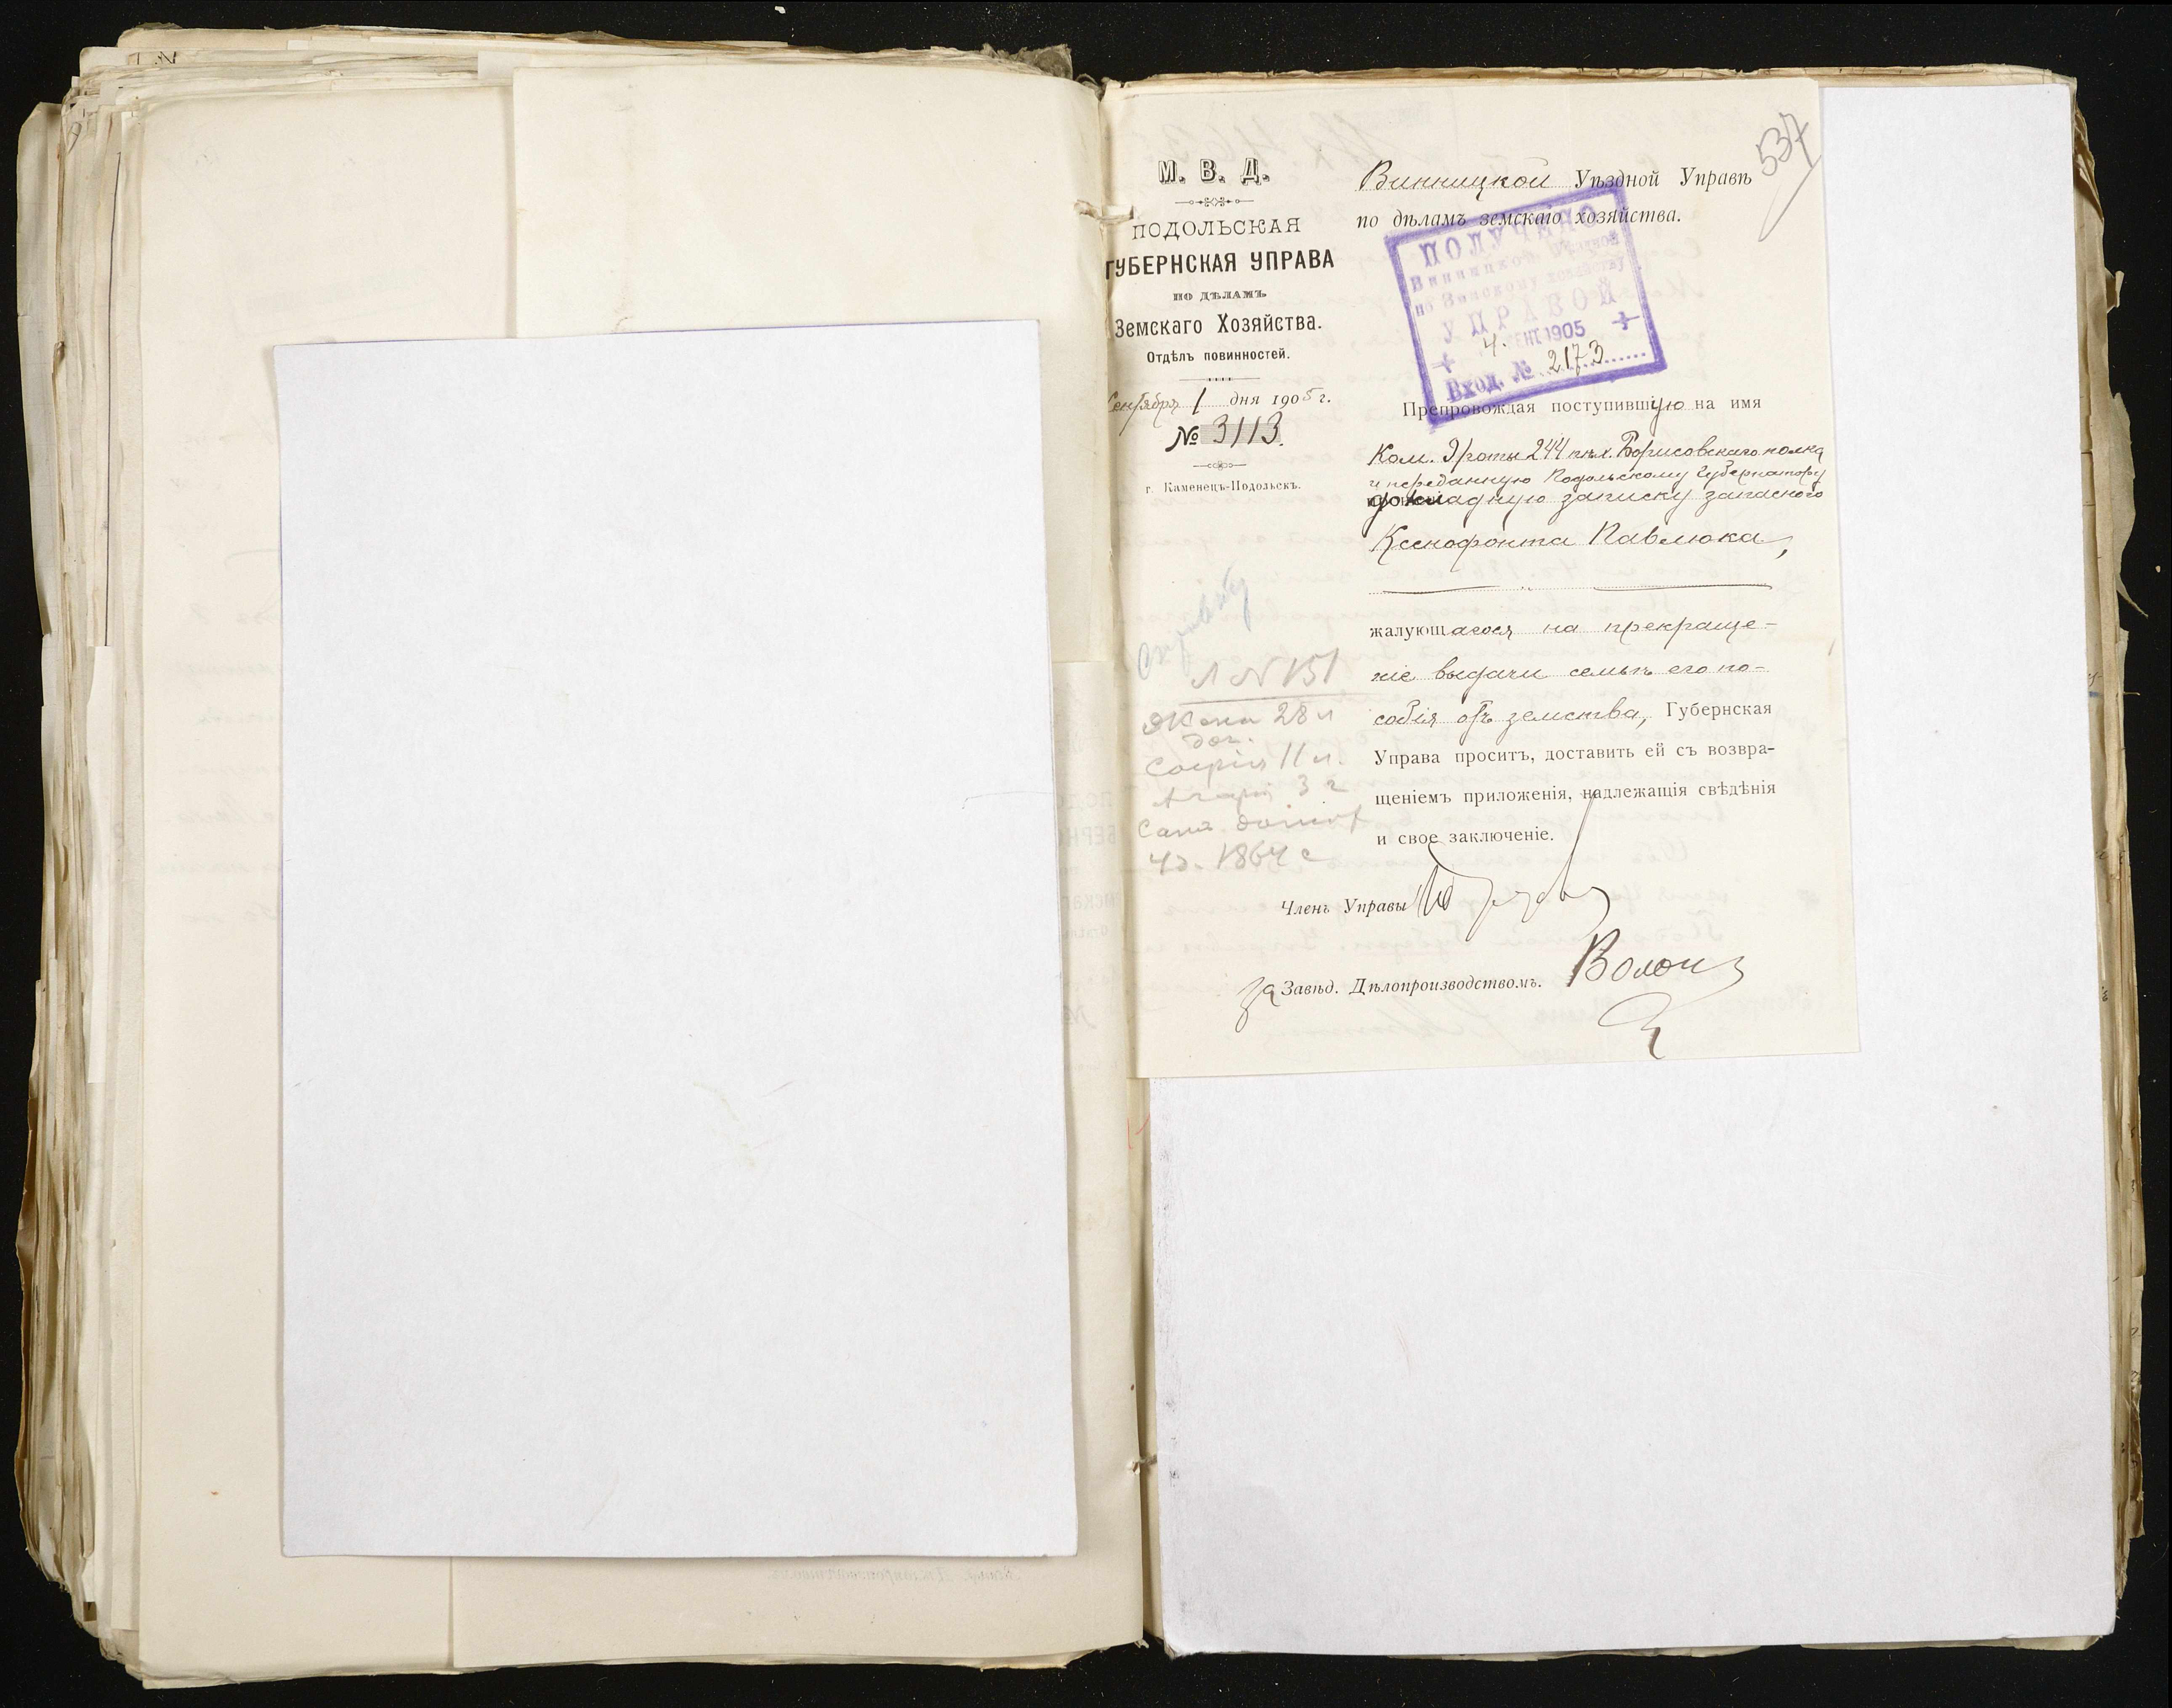 537
М. В. Д.
ПОДОЛЬСКАЯ
ГУБЕРНСКАЯ УПРАВА
ПО ДѢЛАМЪ
Земскаго Хозяйства.
Отдѣлъ повинностей.
Сентября 1 дня 1905 г.
№ 3113.
г. Каменецъ-Подольскъ.
Винницкой Уѣздной Управѣ
по дѣламъ земскаго хозяйства.
ПОЛУЧЕНО
Винницкой Уѣздной
по Земскому хозяйству
УПРАВОЙ
4. СЕНТ 1905
Вход. № 2173
Препровождая поступившую на имя
Ком. 9 роты 244 пѣх. Борисовскаго полка
и переданную Подольскому Губернатору
докладную записку запаснаго
Ксенофонта Павлюка,
жалующагося на прекраще-
ніе выдачи семьѣ его по-
собія отъ земства, Губернская
Управа проситъ, доставить ей съ возвра-
щеніемъ приложенія, надлежащія свѣдѣнія
и свое заключеніе.
Справку
Л № 151
Жена 28 л
доч.
Софія 11 л.
3 г
1864 г
Членъ Управы
За Завѣд. Дѣлопроизводствомъ.